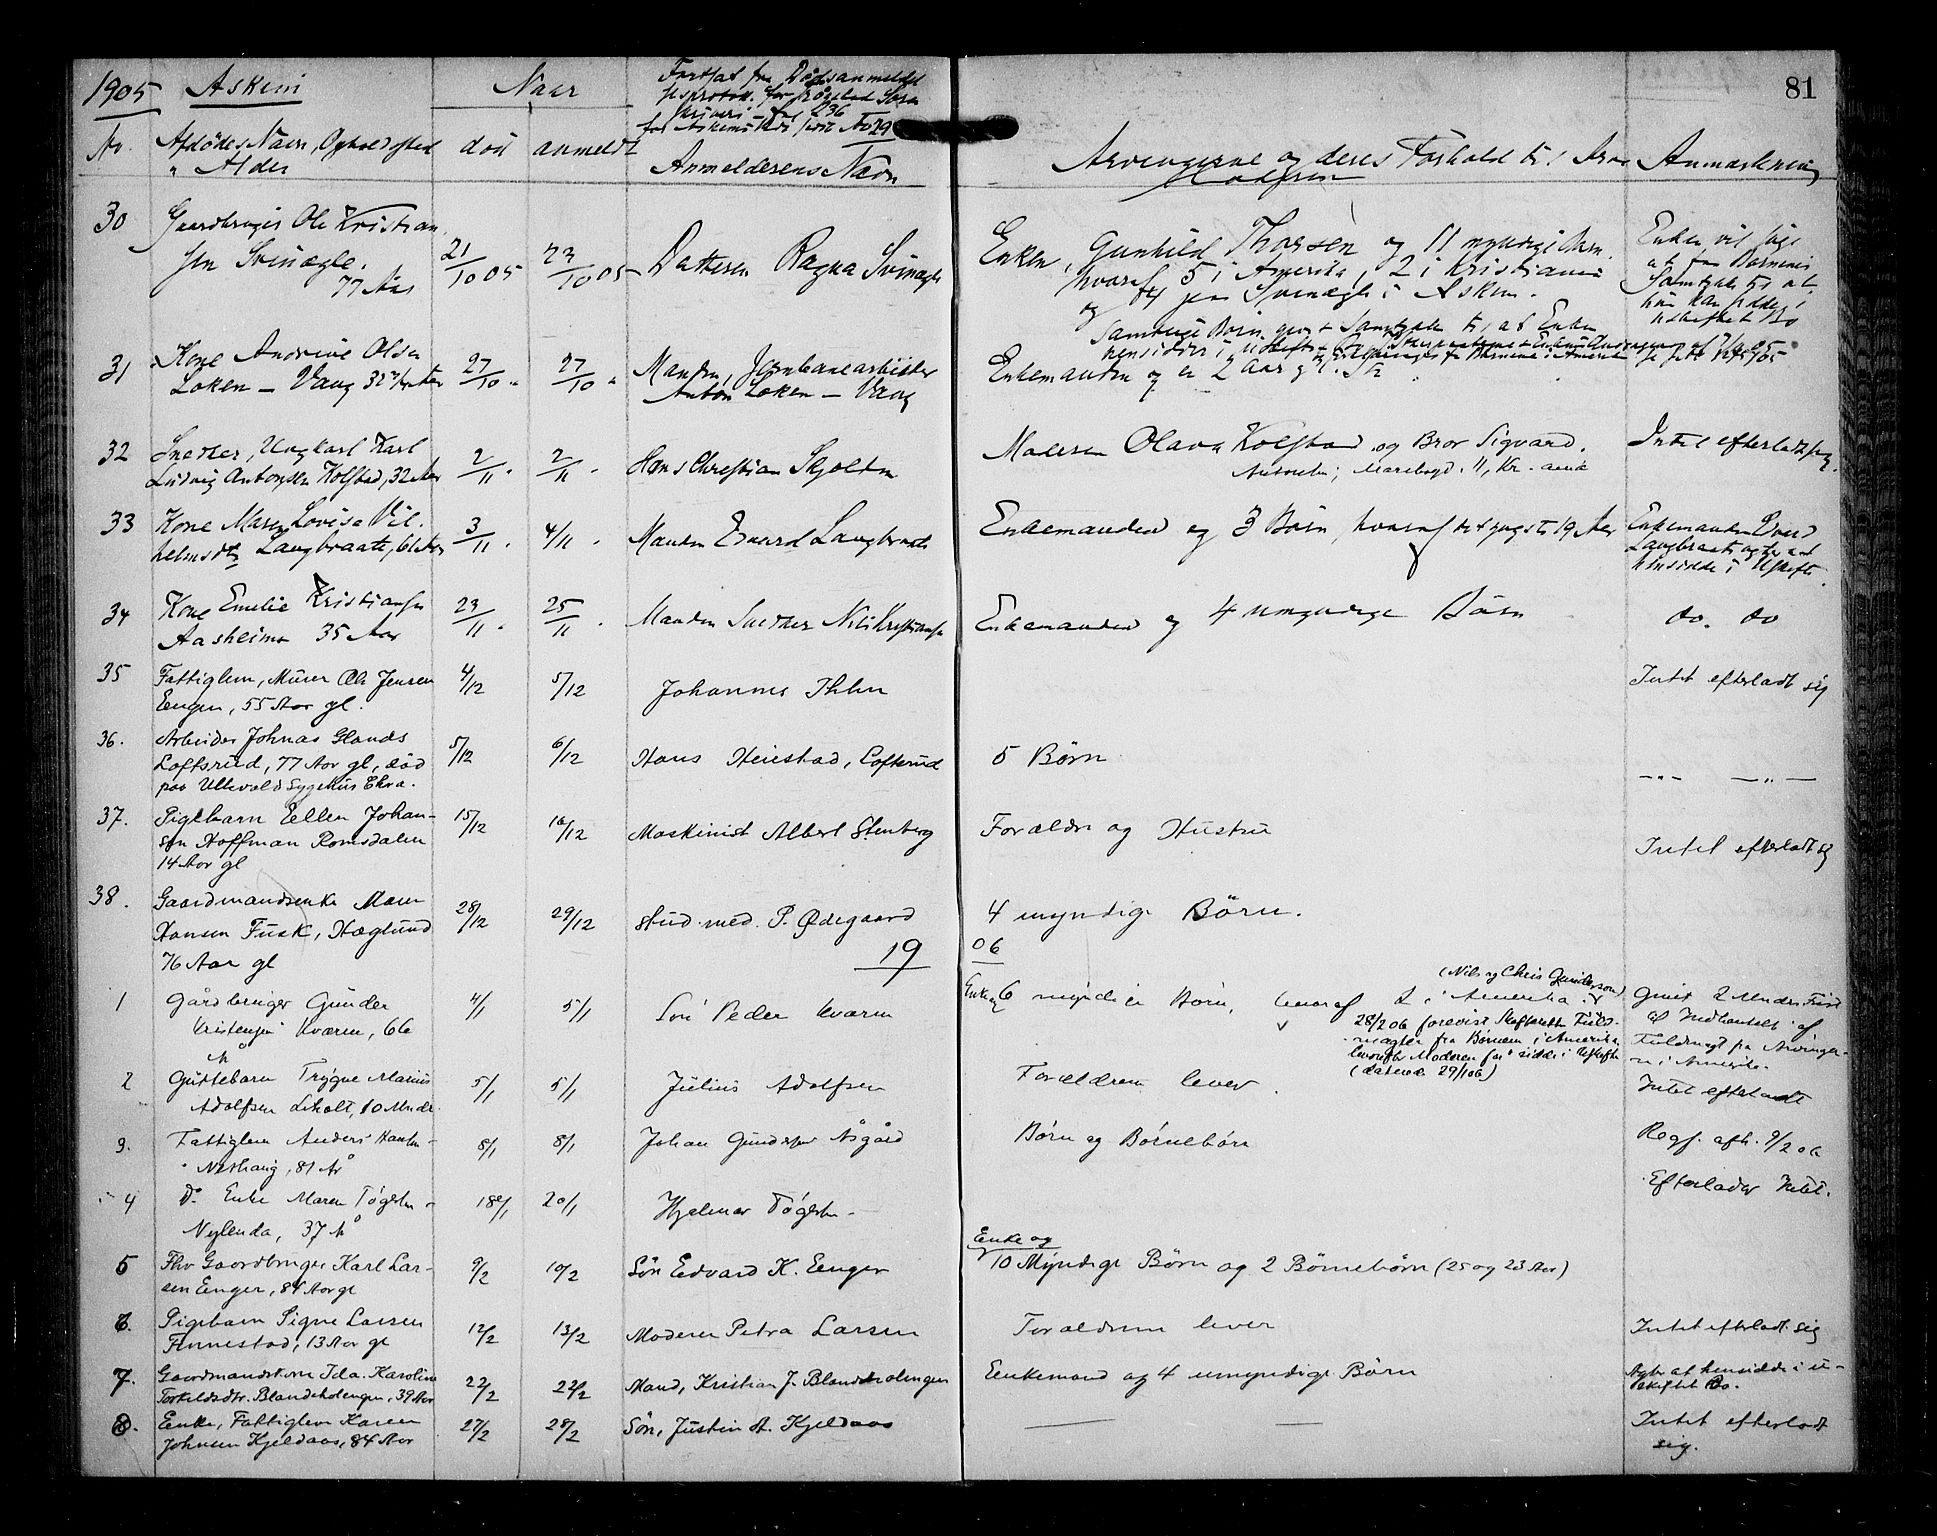 81
1905 Askim
Naar
Fortsat fra Dødsanmeldel
No 29
No. Afdødes Navn, Opholdssted
" Alder
død anmeldt
Anmelderens Navn
Arvingerne og deres Forhold til
Anmærkning
30 Gaardbruger Ole Kristian
sen Svinægle.
77 Aar
21/10 05 23/10 05
Datteren Ragna Svinægle
Enken, Gunhild Thorsen og 11 myndige Børn
hvoraf 5 i Amerika, 2 i Kristiania
og 4 paa Svenægle i Askim.
Enken vil søge
at faa Børnenes
Samtykke til at
hun kan sidde i
uskiftet Bo
31 Kone Andrine Olsen
Løken - Vang
27/10 " 27/10 "
Manden, Jernbanearbeider
Anton Løken - Vang
Enkemanden og
32 Snedker, Ungkarl Karl
Ludvig Antonsen Kolstad, 32 Aar
2/11 " 2/11 "
Hans Christian Skjolden
Moderen Olava Kolstad og Bror Sigvard.
Intet efterladt sig.
33 Kone Maren Lovise Vil-
helmsdtr Langbraate, 61 Aar
3/11 " 4/11 "
Manden Edvard Langbraate
Enkemanden og 3 Børn, hvoraf det yngste 19 Aar
Enkemanden Edvard
Langbraate agter at
hensidde i Uskifte.
34 Kone Emelie Kristiansen
Aasheim 35 Aar
23/11 " 25/11 "
Manden Snedker Nils Kristiansen
Enkemanden og 4 umyndige Børn
do. do
35 Fattiglem, Murer Ole Jensen
Eengen, 55 Aar gl.
4/12 5/12
Johannes Ihlen
Intet efterladt sig
36. Arbeider Johnas Glands
Loftsrud, 77 Aar gl, død
paa Ullevold Sygehus Chra.
5/12 6/12
Hans Heiestad, Loftsrud
5 Børn
-"- -"-
37. Pigebarn Eellen Johan-
sen Hoffman Romsdalen
14 Aar gl
15/12 16/12
Maskinist Albert Stenberg
Forældre og Hustru
Intet efterladt sig
38. Gaardmandsenke Maren
Hansen Fusk, Hæglund
76 Aar gl
28/12 29/12
stud. med. P. Ødegaard
4 myndige Børn.
19 06
1 Gårdbruger Gunder
Kristensen Kværn, 66
År
4/1 5/1
Søn Peder Kværn
Enke og 6 myndige Børn, hvoraf 2 i Amerika.
(Nils og Chris Gunderson)
28/2 06 forevist Skifteretten Fuld-
magter fra Børnene i Amerika
hvorefter Moderen faar sidde i Uskifte
(daterede 29/1 06)
Givet 2 Mndrs Frist
til Indhentelse af
Fuldmagt fra Arvinger-
ne i Amerika.
2 Guttebarn Trygve Marius
Adolfsen Liholt, 10 Mndr.
5/1 5/1
Julius Adolfsen
Forældrene lever.
Intet efterladt
3. Fattiglem Anders Hansen
Neshaug, 81 År
8/1 8/1
Johan Gundersen Åsgård
Børn og Børnebørn
Regf. afh. 9/2 06
4 Do. Enke Maren Tøgersen
Nylenda, 37 År
18/1 20/1
Hjelmar Tøgersen
Efterlader Intet.
5 Fhv Gaardbruger Karl Lar-
sen Eenger, 84 Aar gl
9/2 10/2
Søn Eedvard K. Eenger
Eenke og
10 Myndige Børn og 2 Børnebørn (25 og 23 Aar)
6. Pigebarn Signe Larsen
Finnestad, 13 Aar gl
12/2 13/2
Moderen Petra Larsen
Forældrene lever
Intet efterladt sig
7. Gaardmandskone Ida Karoline
Torkildsdtr. Blandeholengen, 39 Aar
22/2 22/2
Mand, Kristian J. Blandeholengen
Eenkemand og 4 umyndige Børn
Agter at hensidde i u-
skiftet Bo.
8. Eenke, Fattiglem Karen
Johnsen Kjeldaas, 84 Aar
27/2 28/2
Søn, Justin A. Kjeldaas
Intet efterladt
sig.